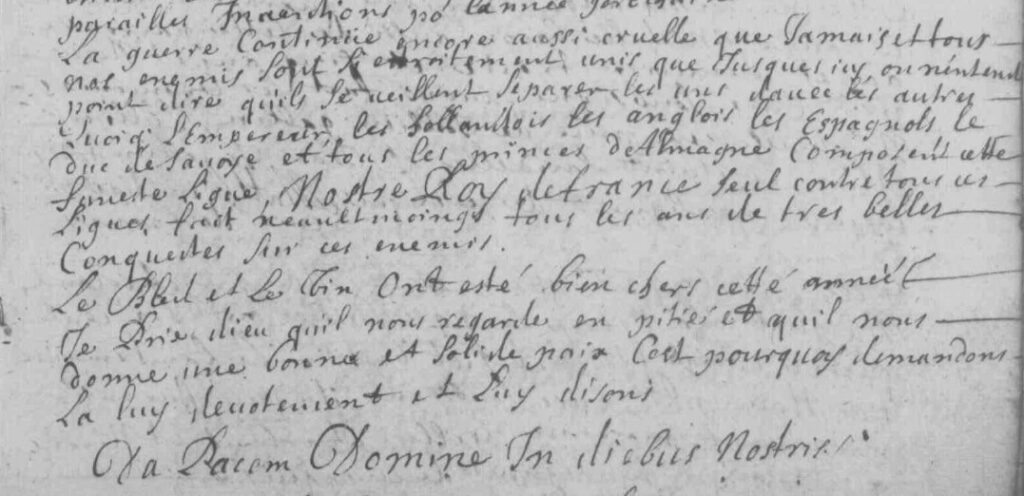 parailles Inaëctions po l'année
La guerre Continüe encore aussi cruelle que Jamais et tous
nos enemis sont Si etroitement unis que Jusques icy on nentend
point dire quils se veillent Separer les uns dauec les autres
L'Empereur, les hollandois les anglois les Espagnols le
duc de Sauoye et tous les princes d'Almagne Composent cette
funeste Ligue, Nostre Roy de france seul contre tous ces
Ligues fait neaultmoings tous les ans de tres belles
Conquestes sur ces enemis.
Le Bled et Le Vin Ont esté bien chers cette année
Je Prie dieu quil nous regarde en pitiéé et quil nous
donne une bonne et solide paix Cest pourquoy demandons
La luy deuotement et Luy disons
Da Pacem Domine In diebus Nostris.